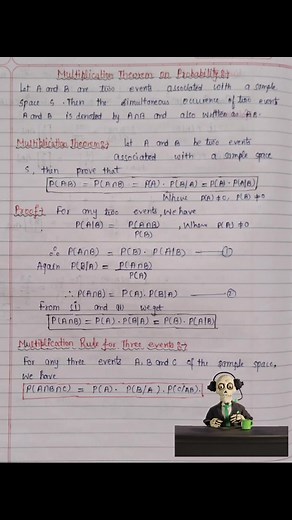 Multiplication Theorem on Probability:→
Let A and B are two events associated with a sample
space S. Then the simultaneous occurence of two events
A and B is denoted by A∩B and also written as AB.
Multiplication Theorem:→ Let A and B be two events
associated with a sample space
S, then prove that
P(AB) = P(A∩B) = P(A)·P(B/A) = P(B)·P(A/B)
Where P(A)≠0, P(B)≠0
Proof:→ For any two events, we have
P(A/B) = P(A∩B)/P(B), Where P(A)≠0
∴ P(A∩B) = P(B)·P(A/B) —— ①
Again P(B/A) = P(A∩B)/P(A)
∴ P(A∩B) = P(A)·P(B/A) —— ②
From (i) and (ii) we get
P(A∩B) = P(A)·P(B/A) = P(B)·P(A/B)
Multiplication Rule for Three events:→
For any three events A, B and C of the sample space,
we have
P(A∩B∩C) = P(A)·P(B/A)·P(C/AB).